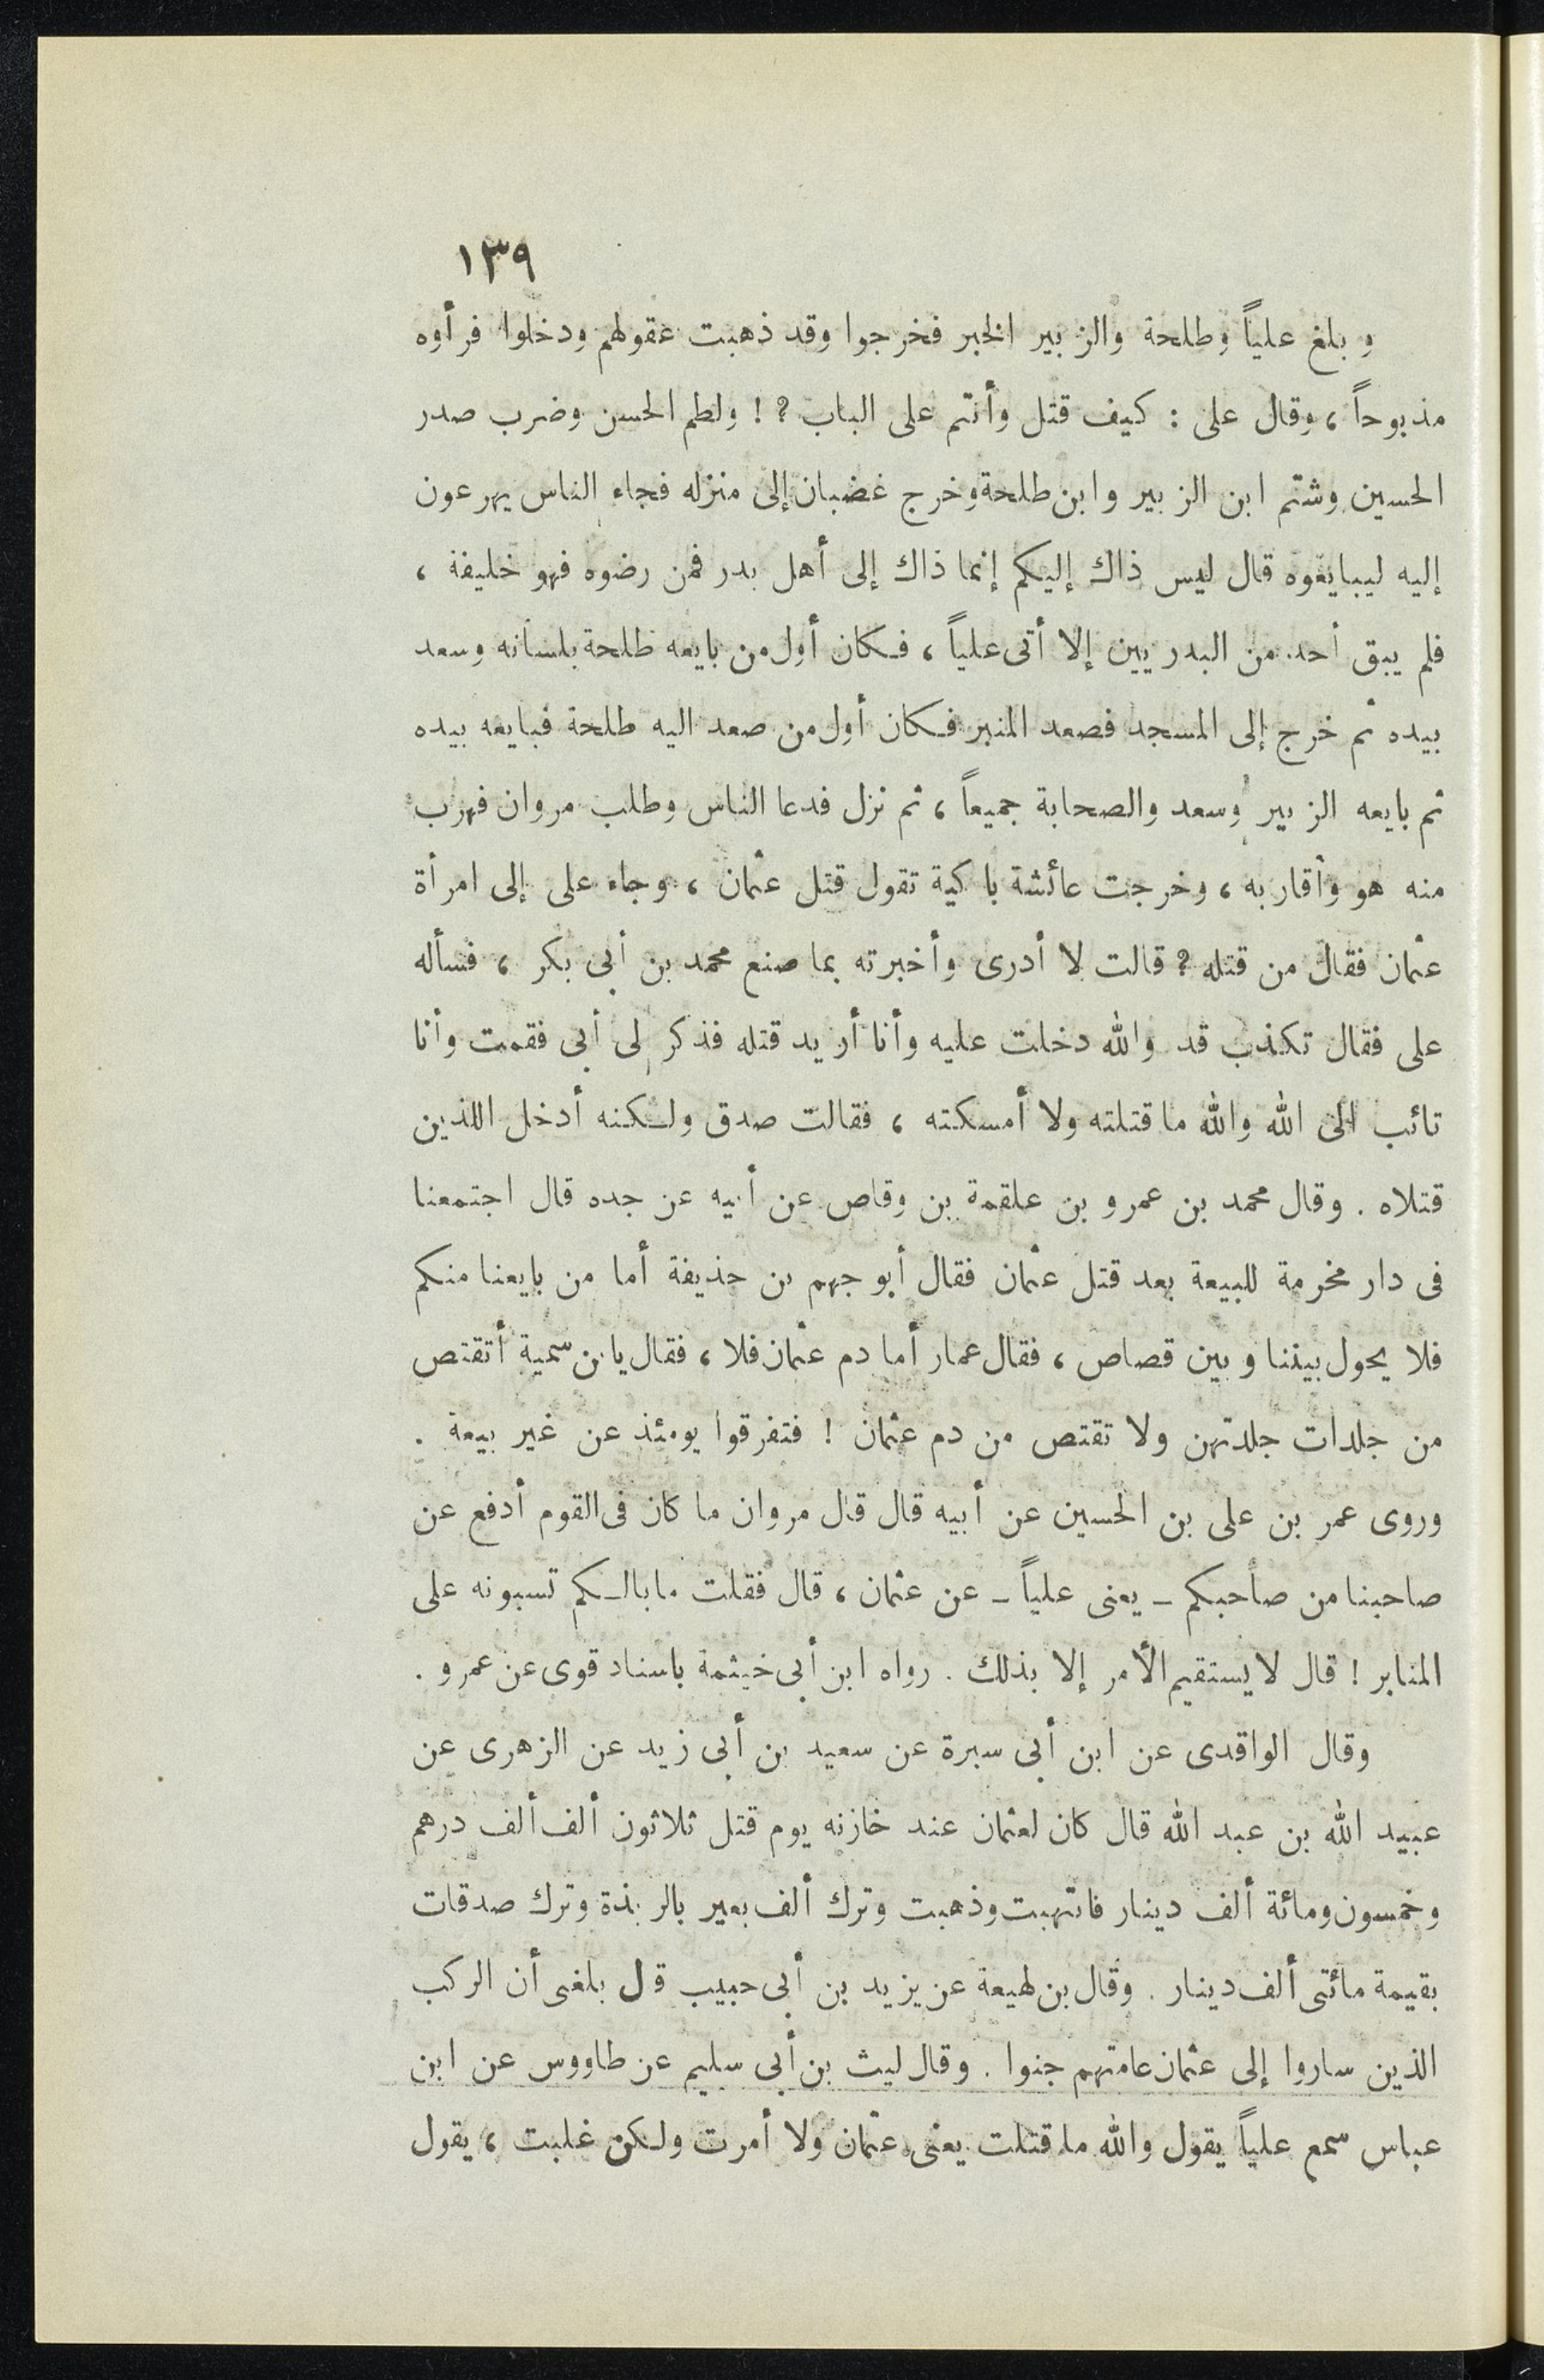 ١٣٩
و بلغ علياً وطلحة والزبير الخبر فخرجوا وقد ذهبت عقولهم ودخلوا فرأوه
مذبوحاً ، وقال على : كيف قتل وأنتم على الباب ؟ ! ولطم الحسن وضرب صدر
الحسين وشتم ابن الزبير وابن طلحة وخرج غضبان إلى منزله فجاء الناس يهرعون
إليه ليبايعوه قال ليس ذاك إليكم إنما ذاك إلى أهل بدر فمن رضوه فهو خليفة ،
فلم يبق أحد من البدريين إلا أتى علياً ، فكان أول من بايعه طلحة بلسانه وسعد
بيده ثم خرج إلى المسجد فصعد المنبر فكان أول من صعد اليه طلحة فبايعه بيده
ثم بايعه الزبير وسعد والصحابة جميعاً ، ثم نزل فدعا الناس وطلب مروان فهرب
منه هو وأقاربه ، وخرجت عائشة باكية تقول قتل عثمان ، وجاء على إلى امرأة
عثمان فقال من قتله ؟ قالت لا أدرى وأخبرته بما صنع محمد بن أبى بكر ، فسأله
على فقال تكذب قد والله دخلت عليه وأنا أريد قتله فذكر لى أبى فقمت وأنا
تائب الى الله والله ما قتلته ولا أمسكته ، فقالت صدق ولكنه أدخل اللذين
قتلاه . وقال محمد بن عمرو بن علقمة بن وقاص عن أبيه عن جده قال اجتمعنا
فى دار مخرمة للبيعة بعد قتل عثمان فقال أبو جهم بن حذيفة أما من بايعنا منكم
فلا يحول بيننا و بين قصاص ، فقال عمار أما دم عثمان فلا ، فقال يابن سمية أتقتص
من جلدات جلدتهن ولا تقتص من دم عثمان ! فتفرقوا يومئذ عن غير بيعة .
وروى عمر بن على بن الحسين عن أبيه قال قال مروان ما كان فى القوم أدفع عن
صاحبنا من صاحبكم - يعنى علياً - عن عثمان ، قال فقلت ما بالكم تسبونه على
المنابر ! قال لا يستقيم الأمر إلا بذلك . رواه ابن أبى خيثمة باسناد قوى عن عمرو .
وقال الواقدى عن ابن أبى سبرة عن سعيد بن أبى زيد عن الزهرى عن
عبيد الله بن عبد الله قال كان لعثمان عند خازنه يوم قتل ثلاثون ألف ألف درهم
وخمسون ومائة ألف دينار فانتهبت وذهبت وترك ألف بعير بالربذة وترك صدقات
بقيمة مائتى ألف دينار . وقال بن لهيعة عن يزيد بن أبى حبيب قل بلغنى أن الركب
الذين ساروا إلى عثمان عامتهم جنوا . وقال ليث بن أبى سليم عن طاووس عن ابن
عباس سمع علياً يقول والله ما قتلت يعنى عثمان ولا أمرت ولكن غلبت ، يقول